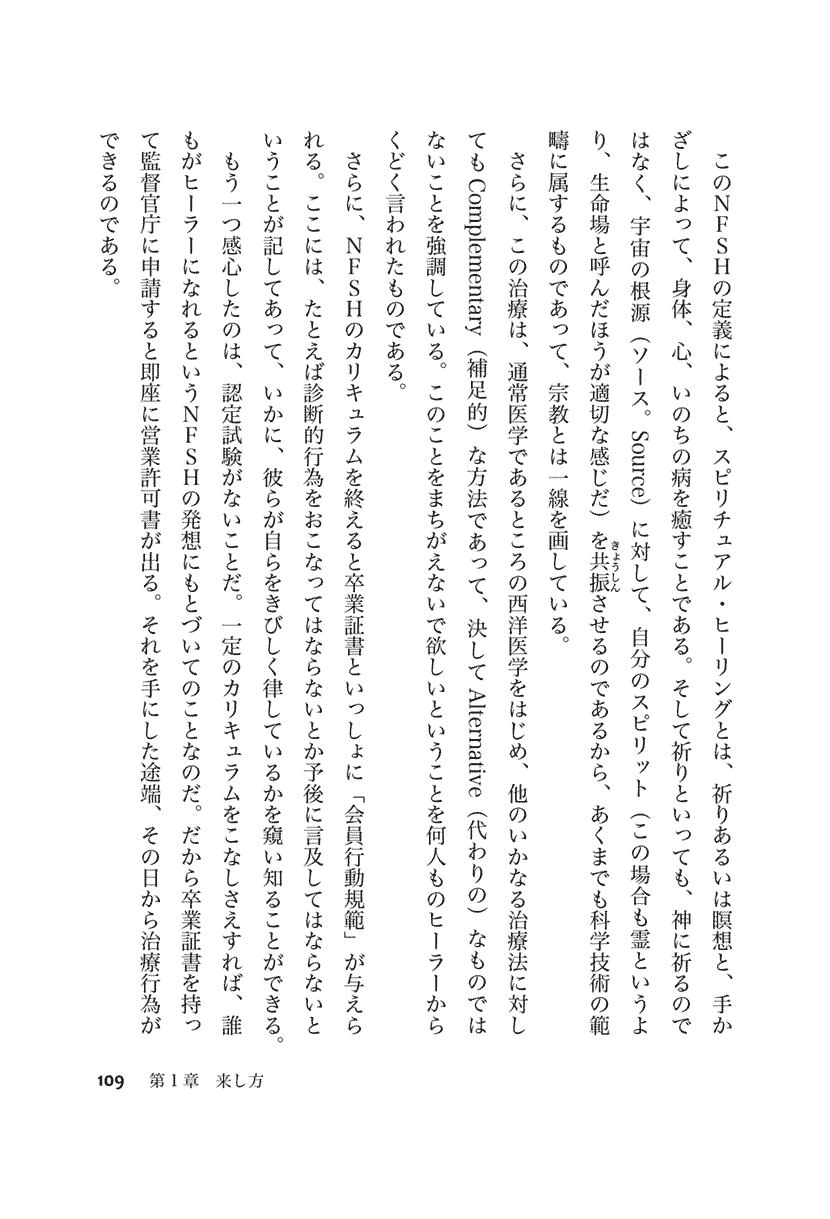 このNFSHの定義によると、スピリチュアル・ヒーリングとは、祈りあるいは瞑想と、手か
ざしによって、身体、心、いのちの病を癒すことである。そして祈りといっても、神に祈るので
はなく、宇宙の根源（ソース。Source）に対して、自分のスピリット（この場合も霊というよ
り、生命場と呼んだほうが適切な感じだ）を共振きょうしんさせるのであるから、あくまでも科学技術の範
疇に属するものであって、宗教とは一線を画している。
さらに、この治療は、通常医学であるところの西洋医学をはじめ、他のいかなる治療法に対し
てもComplementary（補足的）な方法であって、決してAlternative（代わりの）なものでは
ないことを強調している。このことをまちがえないで欲しいということを何人ものヒーラーから
くどく言われたものである。
さらに、NFSHのカリキュラムを終えると卒業証書といっしょに「会員行動規範」が与えら
れる。ここには、たとえば診断的行為をおこなってはならないとか予後に言及してはならないと
いうことが記してあって、いかに、彼らが自らをきびしく律しているかを窺い知ることができる。
もう一つ感心したのは、認定試験がないことだ。一定のカリキュラムをこなしさえすれば、誰
もがヒーラーになれるというNFSHの発想にもとづいてのことなのだ。だから卒業証書を持っ
て監督官庁に申請すると即座に営業許可書が出る。それを手にした途端、その日から治療行為が
できるのである。
109 第1章 来し方